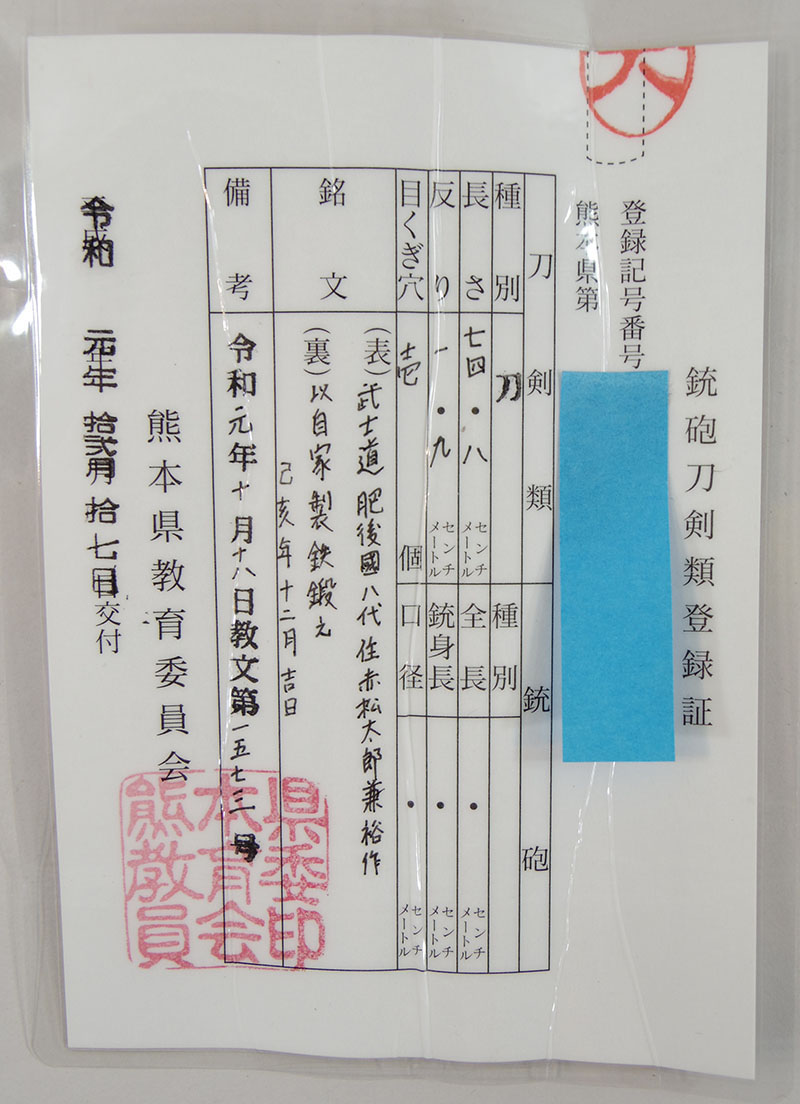 銃砲刀剣類登録証
登録記号番号
熊本県第
刀剣類
銃砲
種別
刀
種別
長さ
七四・八
センチメートル
全長
・
センチメートル
反り
一・九
センチメートル
銃身長
・
センチメートル
目くぎ穴
壱
個
口径
・
センチメートル
銘文
(表)武士道 肥後國八代住赤松太郎兼裕作
(裏)以自家製鉄鍛之
己亥年十二月吉日
備考
令和元年十月十八日教文第一五七三号
熊本県教育委員会
令和 元年 拾弐月 拾七日交付
熊本県教育委員会印